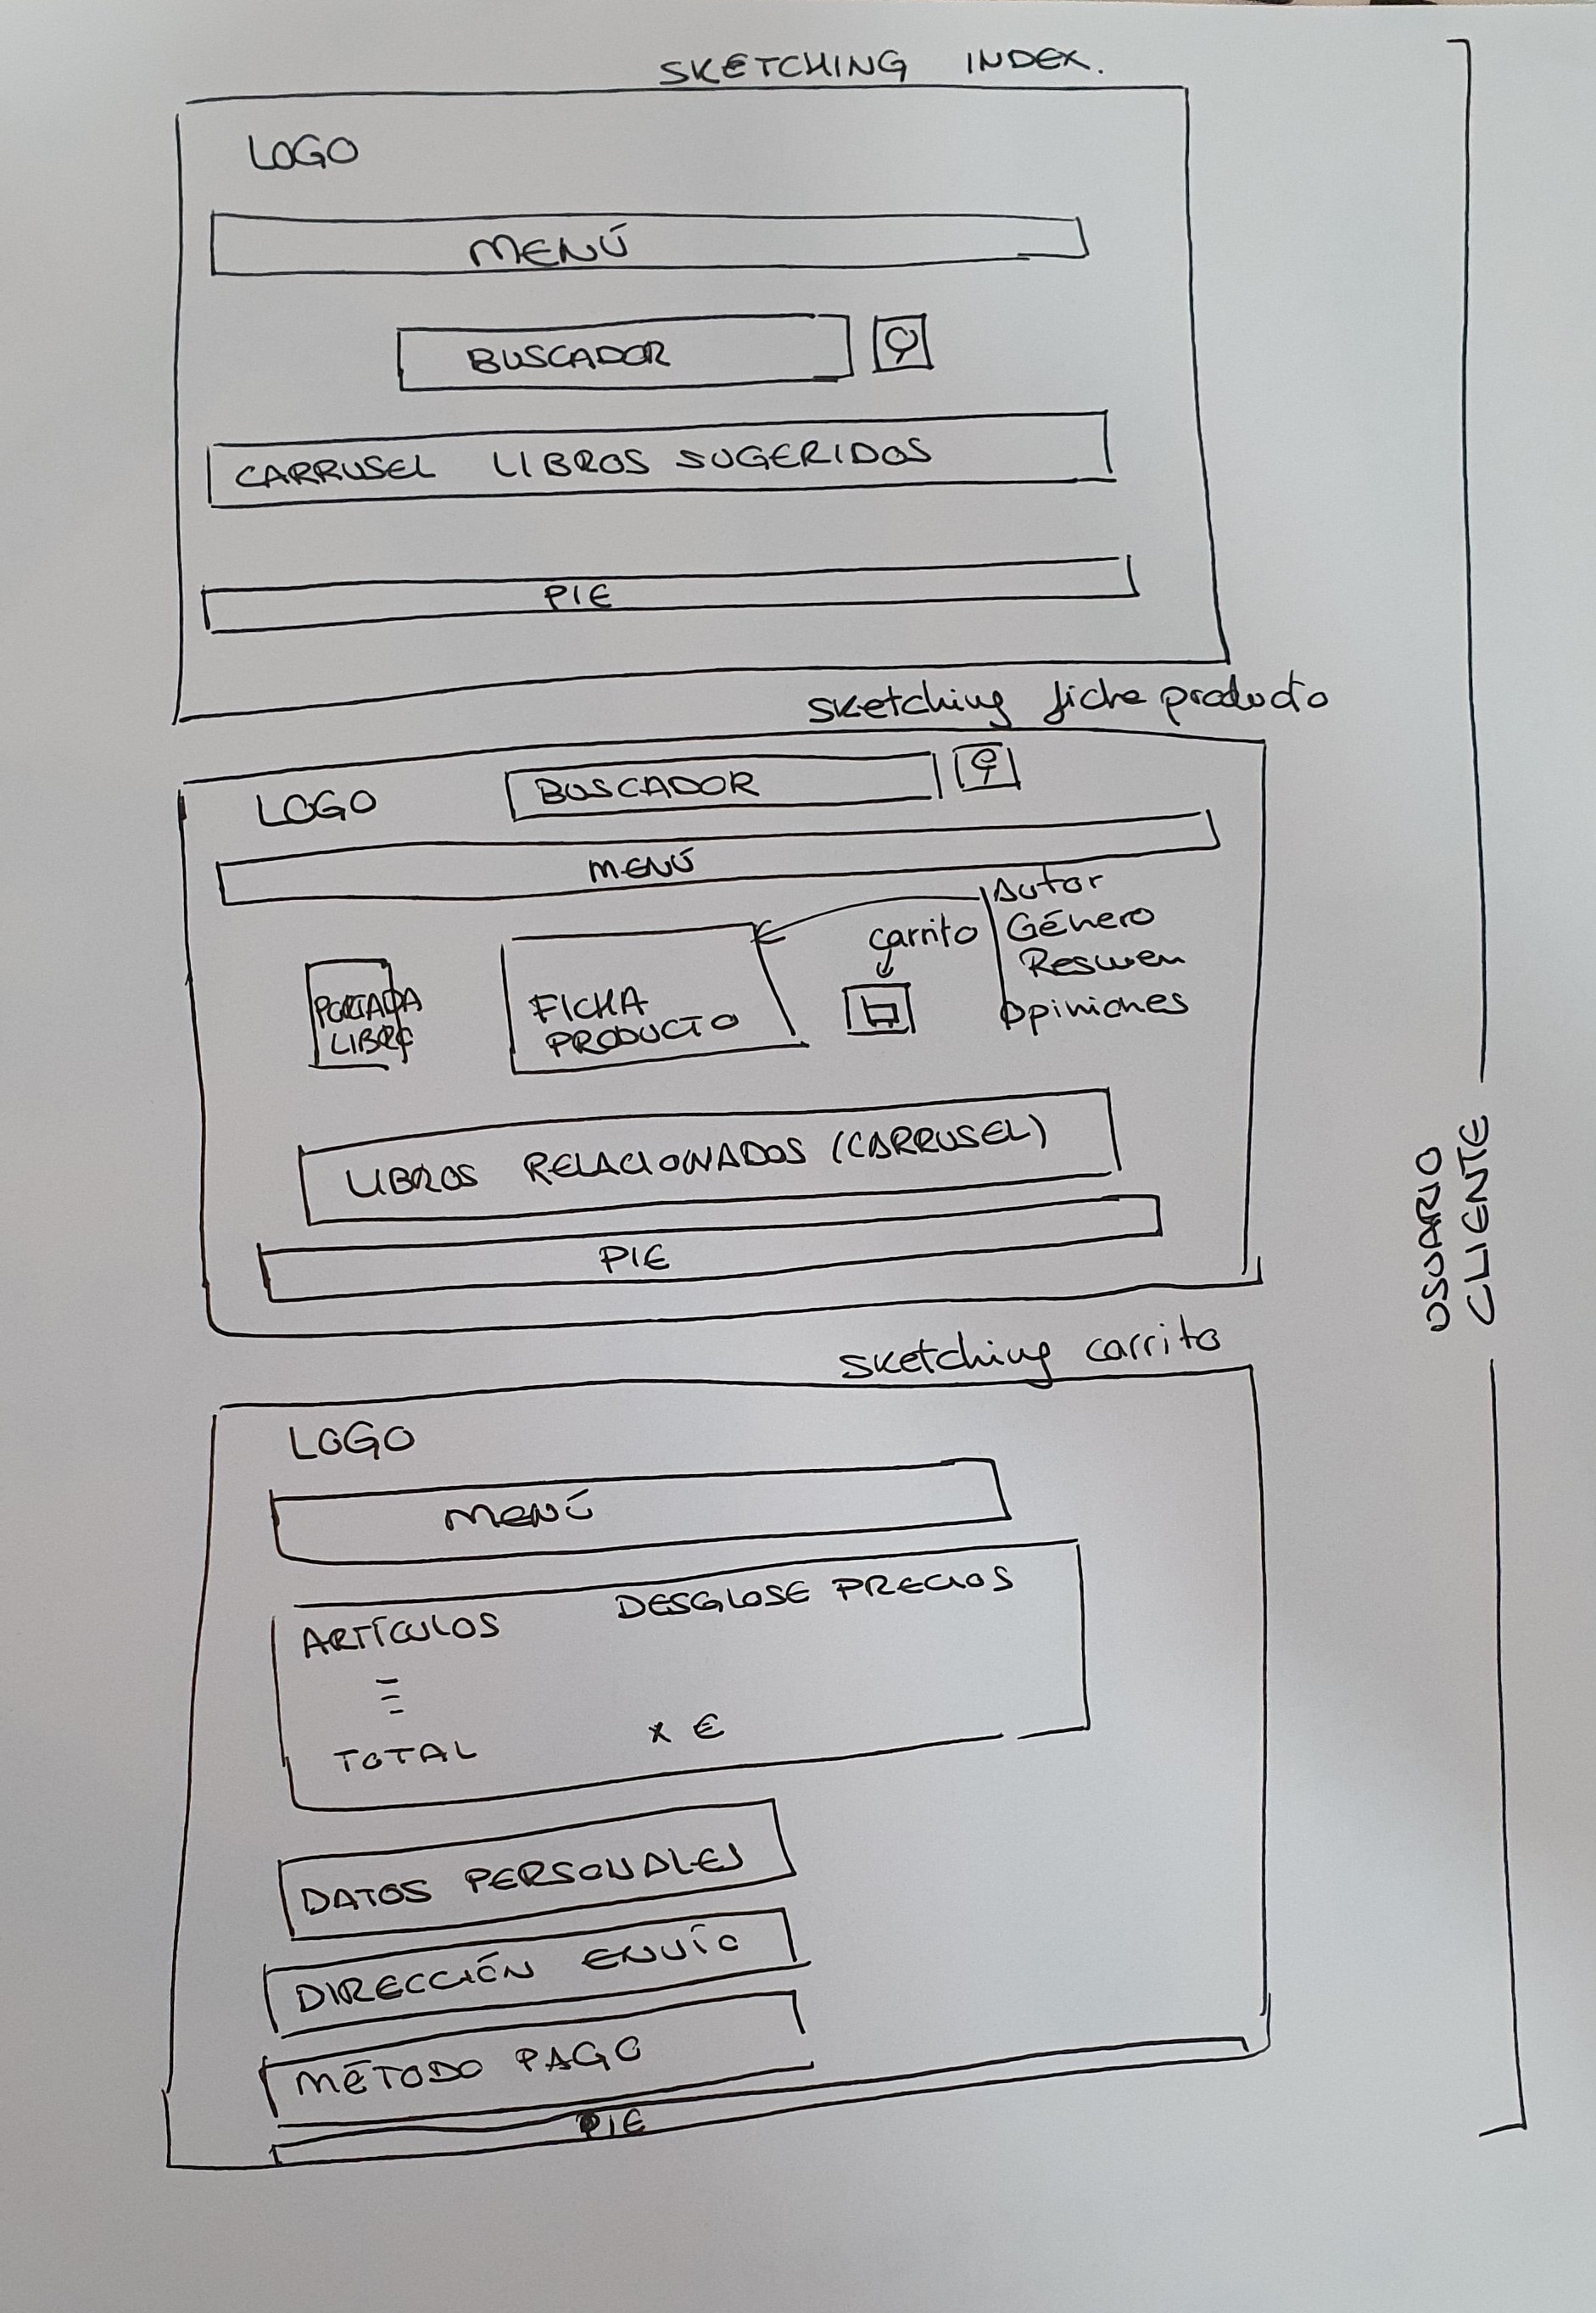 SKETCHING INDEX.
LOGO
MENÚ
BUSCADOR
CARRUSEL LIBROS SUGERIDOS
PIE
sketching ficha producto
LOGO
BUSCADOR
MENÚ
PORTADA
LIBRO
FICHA
PRODUCTO
carrito
Autor
Género
Resumen
Opiniones
LIBROS RELACIONADOS (CARRUSEL)
PIE
sketching carrito
LOGO
MENÚ
ARTÍCULOS DESGLOSE PRECIOS
TOTAL x €
DATOS PERSONALES
DIRECCIÓN ENVÍO
MÉTODO PAGO
PIE
USUARIO
CLIENTE